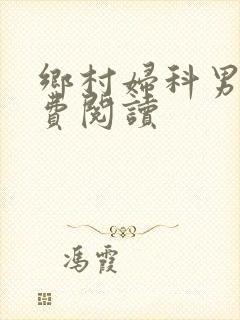 鄉村婦科男
費閱讀
馮霞